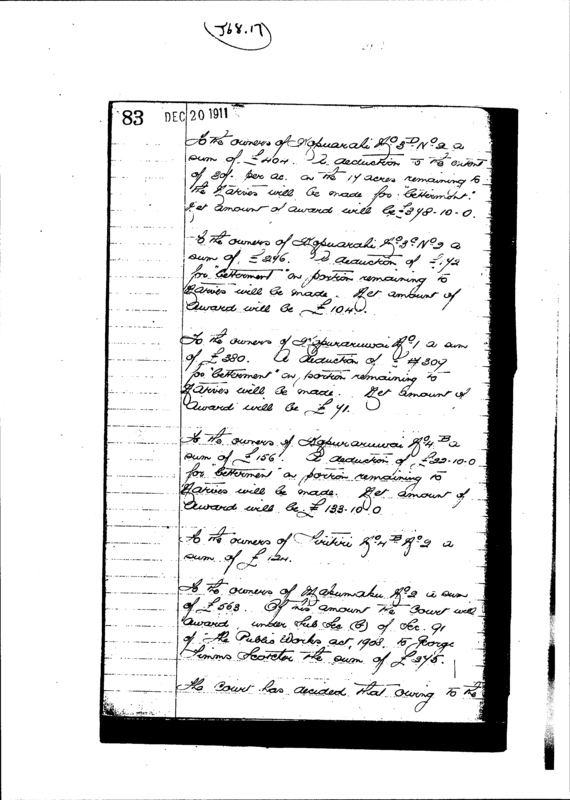 J68.17
83 DEC 20 1911
To the owners of Hapuarahi No 3D No 2 a
sum of £404. A deduction to the extent
of 30/- per ac. on the 17 acres remaining to
the Natives will be made for "betterment."
Net amount of award will be £378-10-0.
To the owners of Hapuarahi No 3C No 2 a
sum of £246. A deduction of £142
for "betterment" on portion remaining to
Natives will be made. Net amount of
award will be £104.
To the owners of No 1 a sum
of £380. A deduction of £309
for "betterment" on portion remaining to
Natives will be made. Net amount of
award will be £71.
To the owners of No 4B a
sum of £156. A deduction of £22-10-0
for betterment on portion remaining to
Natives will be made. Net amount of
award will be £133-10-0
To the owners of No 4B No 2 a
sum of £124.
To the owners of No 2 a sum
of £563. Of this amount the Court will
award under Sub Sec of Sec. 91
of The Public Works Act, 1908, to George
Simms Scotcher the sum of £345.
The Court has decided that owing to the